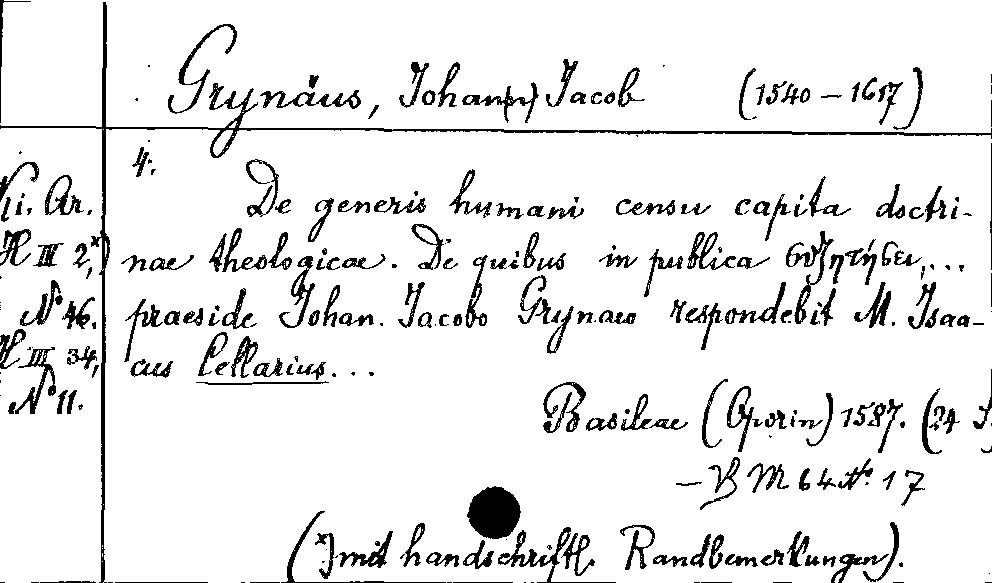 Grynäus, Johan(n) Jacob (1540 – 1617)
4.
De generis humani censu capita doctri-
nae theologicae. De quibus in publica συζητήσει,...
praeside Johan. Jacobo Grynaeo respondebit M. Isaa-
cus Cellarius...
Basileae (Oporin) 1587. (24 S.
– B M 64 No. 17
(*) mit handschriftl. Randbemerkungen).
Ki. Ar.
H III 2,*)
No 46.
H III 34,
No 11.